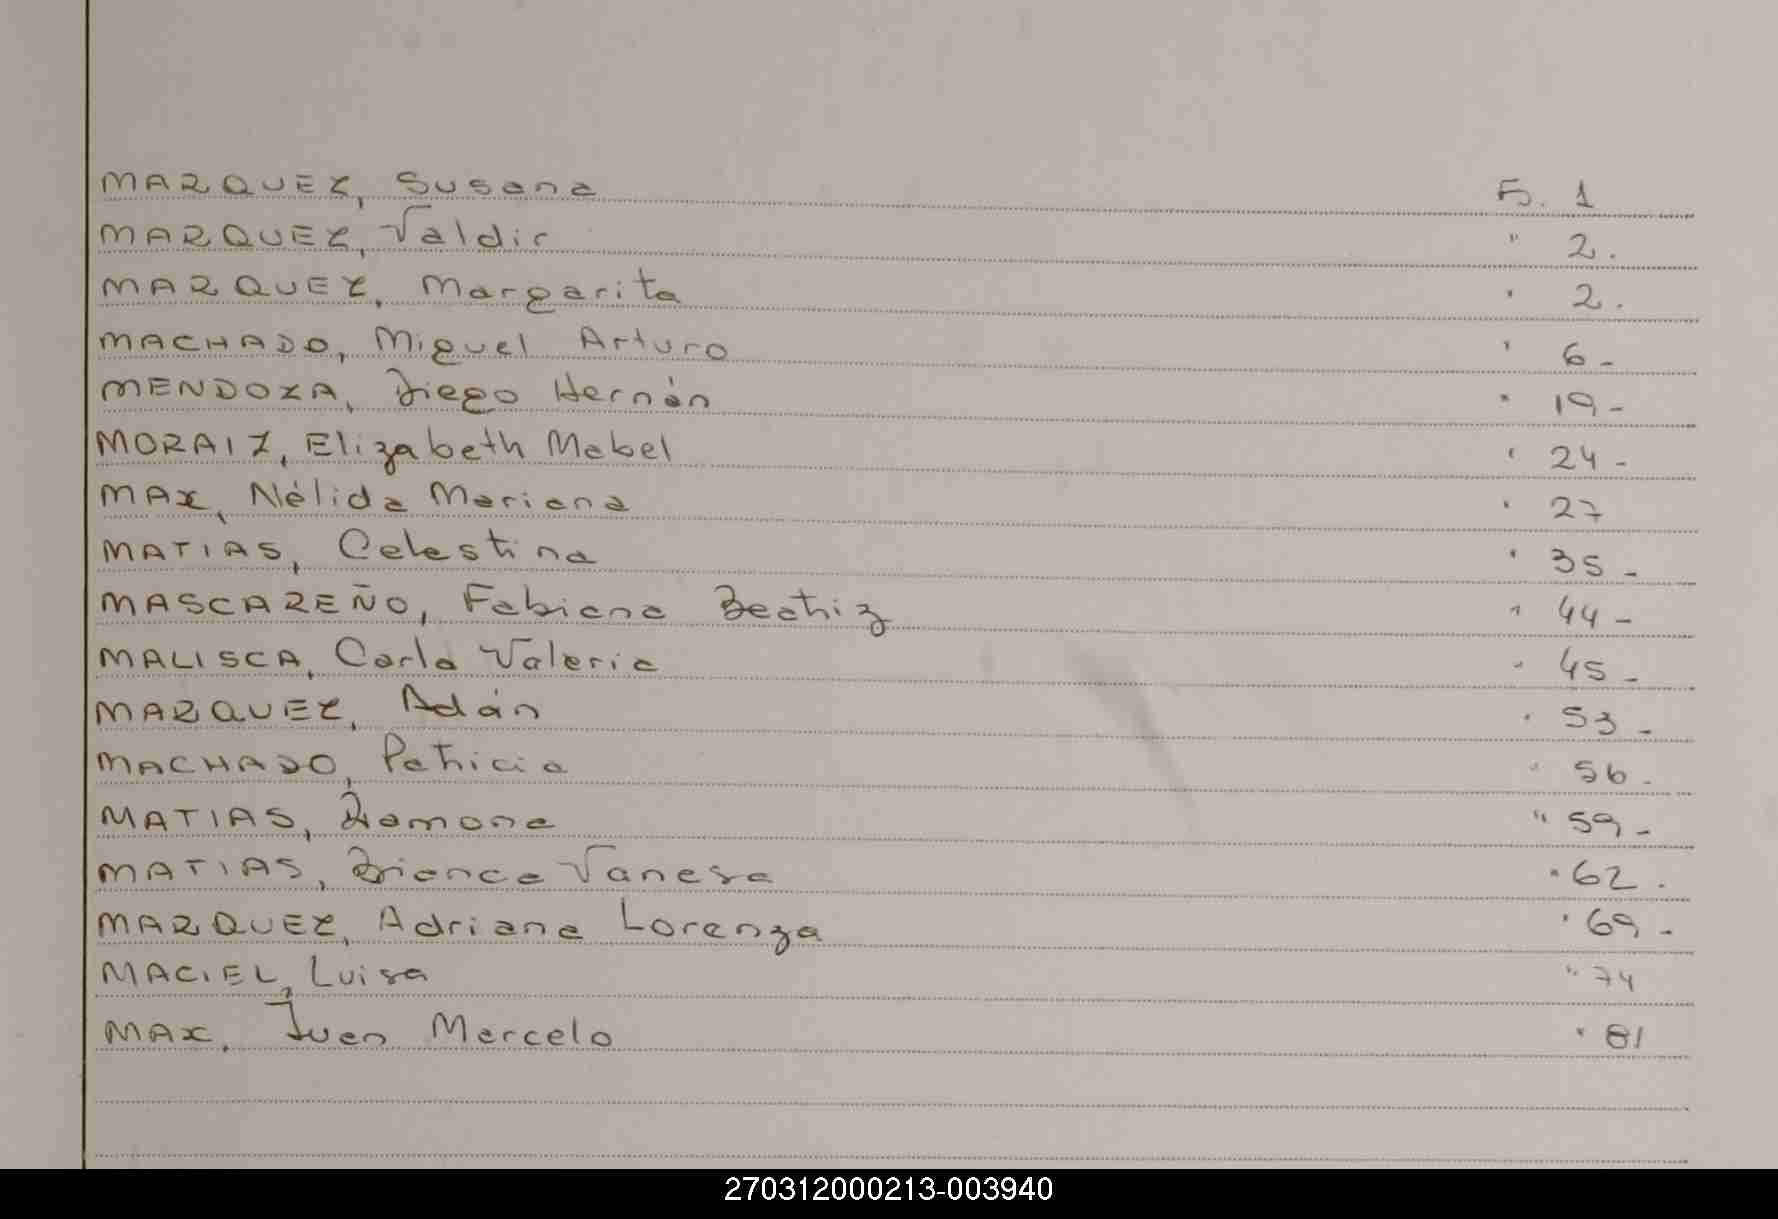 MARQUEZ, Susana Fs. 1
MARQUEZ, Valdir " 2.
MARQUEZ, Margarita " 2.
MACHADO, Miguel Arturo " 6-
MENDOZA, Diego Hernán " 19-
MORAIZ, Elizabeth Mabel " 24-
MAX, Nélida Mariana " 27
MATIAS, Celestina " 35-
MASCAREÑO, Fabiana Beatriz " 44-
MALISCA, Carla Valeria " 45-
MARQUEZ, Adán " 53-
MACHADO, Patricia " 56-
MATIAS, Ramona " 59-
MATIAS, Bianca Vanesa " 62.
MARQUEZ, Adriana Lorenza " 69-
MACIEL, Luisa " 74
MAX, Juan Marcelo " 81
270312000213-003940